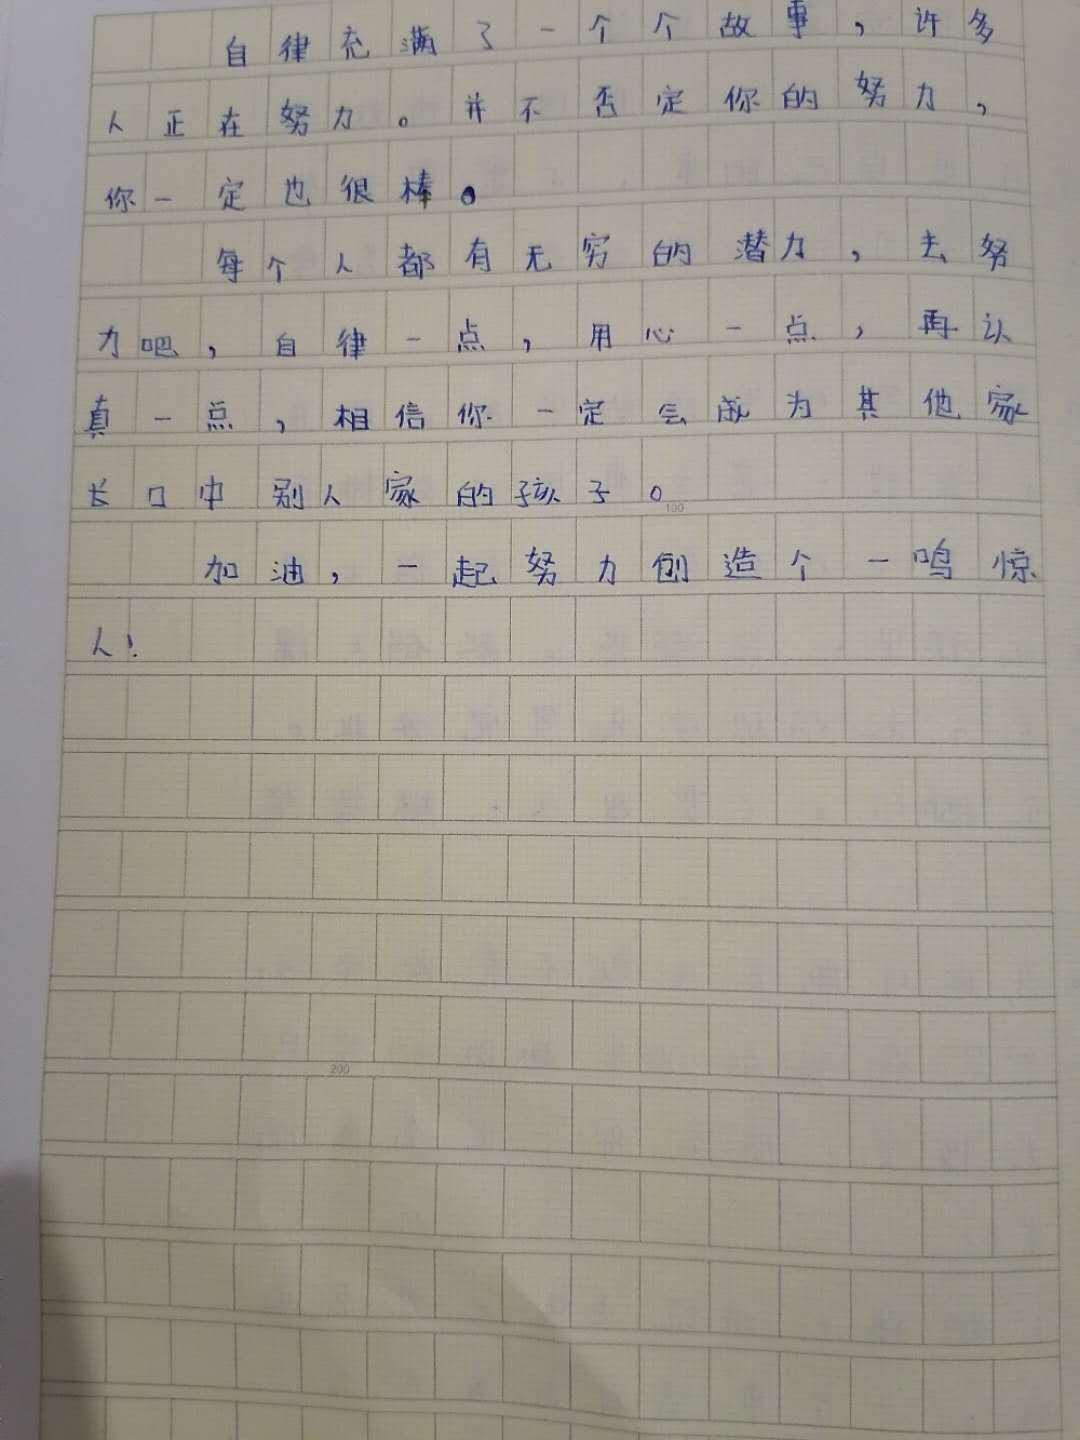 自律充满了一个个故事，许多
人正在努力。并不否定你的努力，
你一定也很棒。
每个人都有无穷的潜力，去努
力吧，自律一点，用心一点，再认
真一点，相信你一定会成为其他家
长口中别人家的孩子。
100
加油，一起努力创造个一鸣惊
人！
200